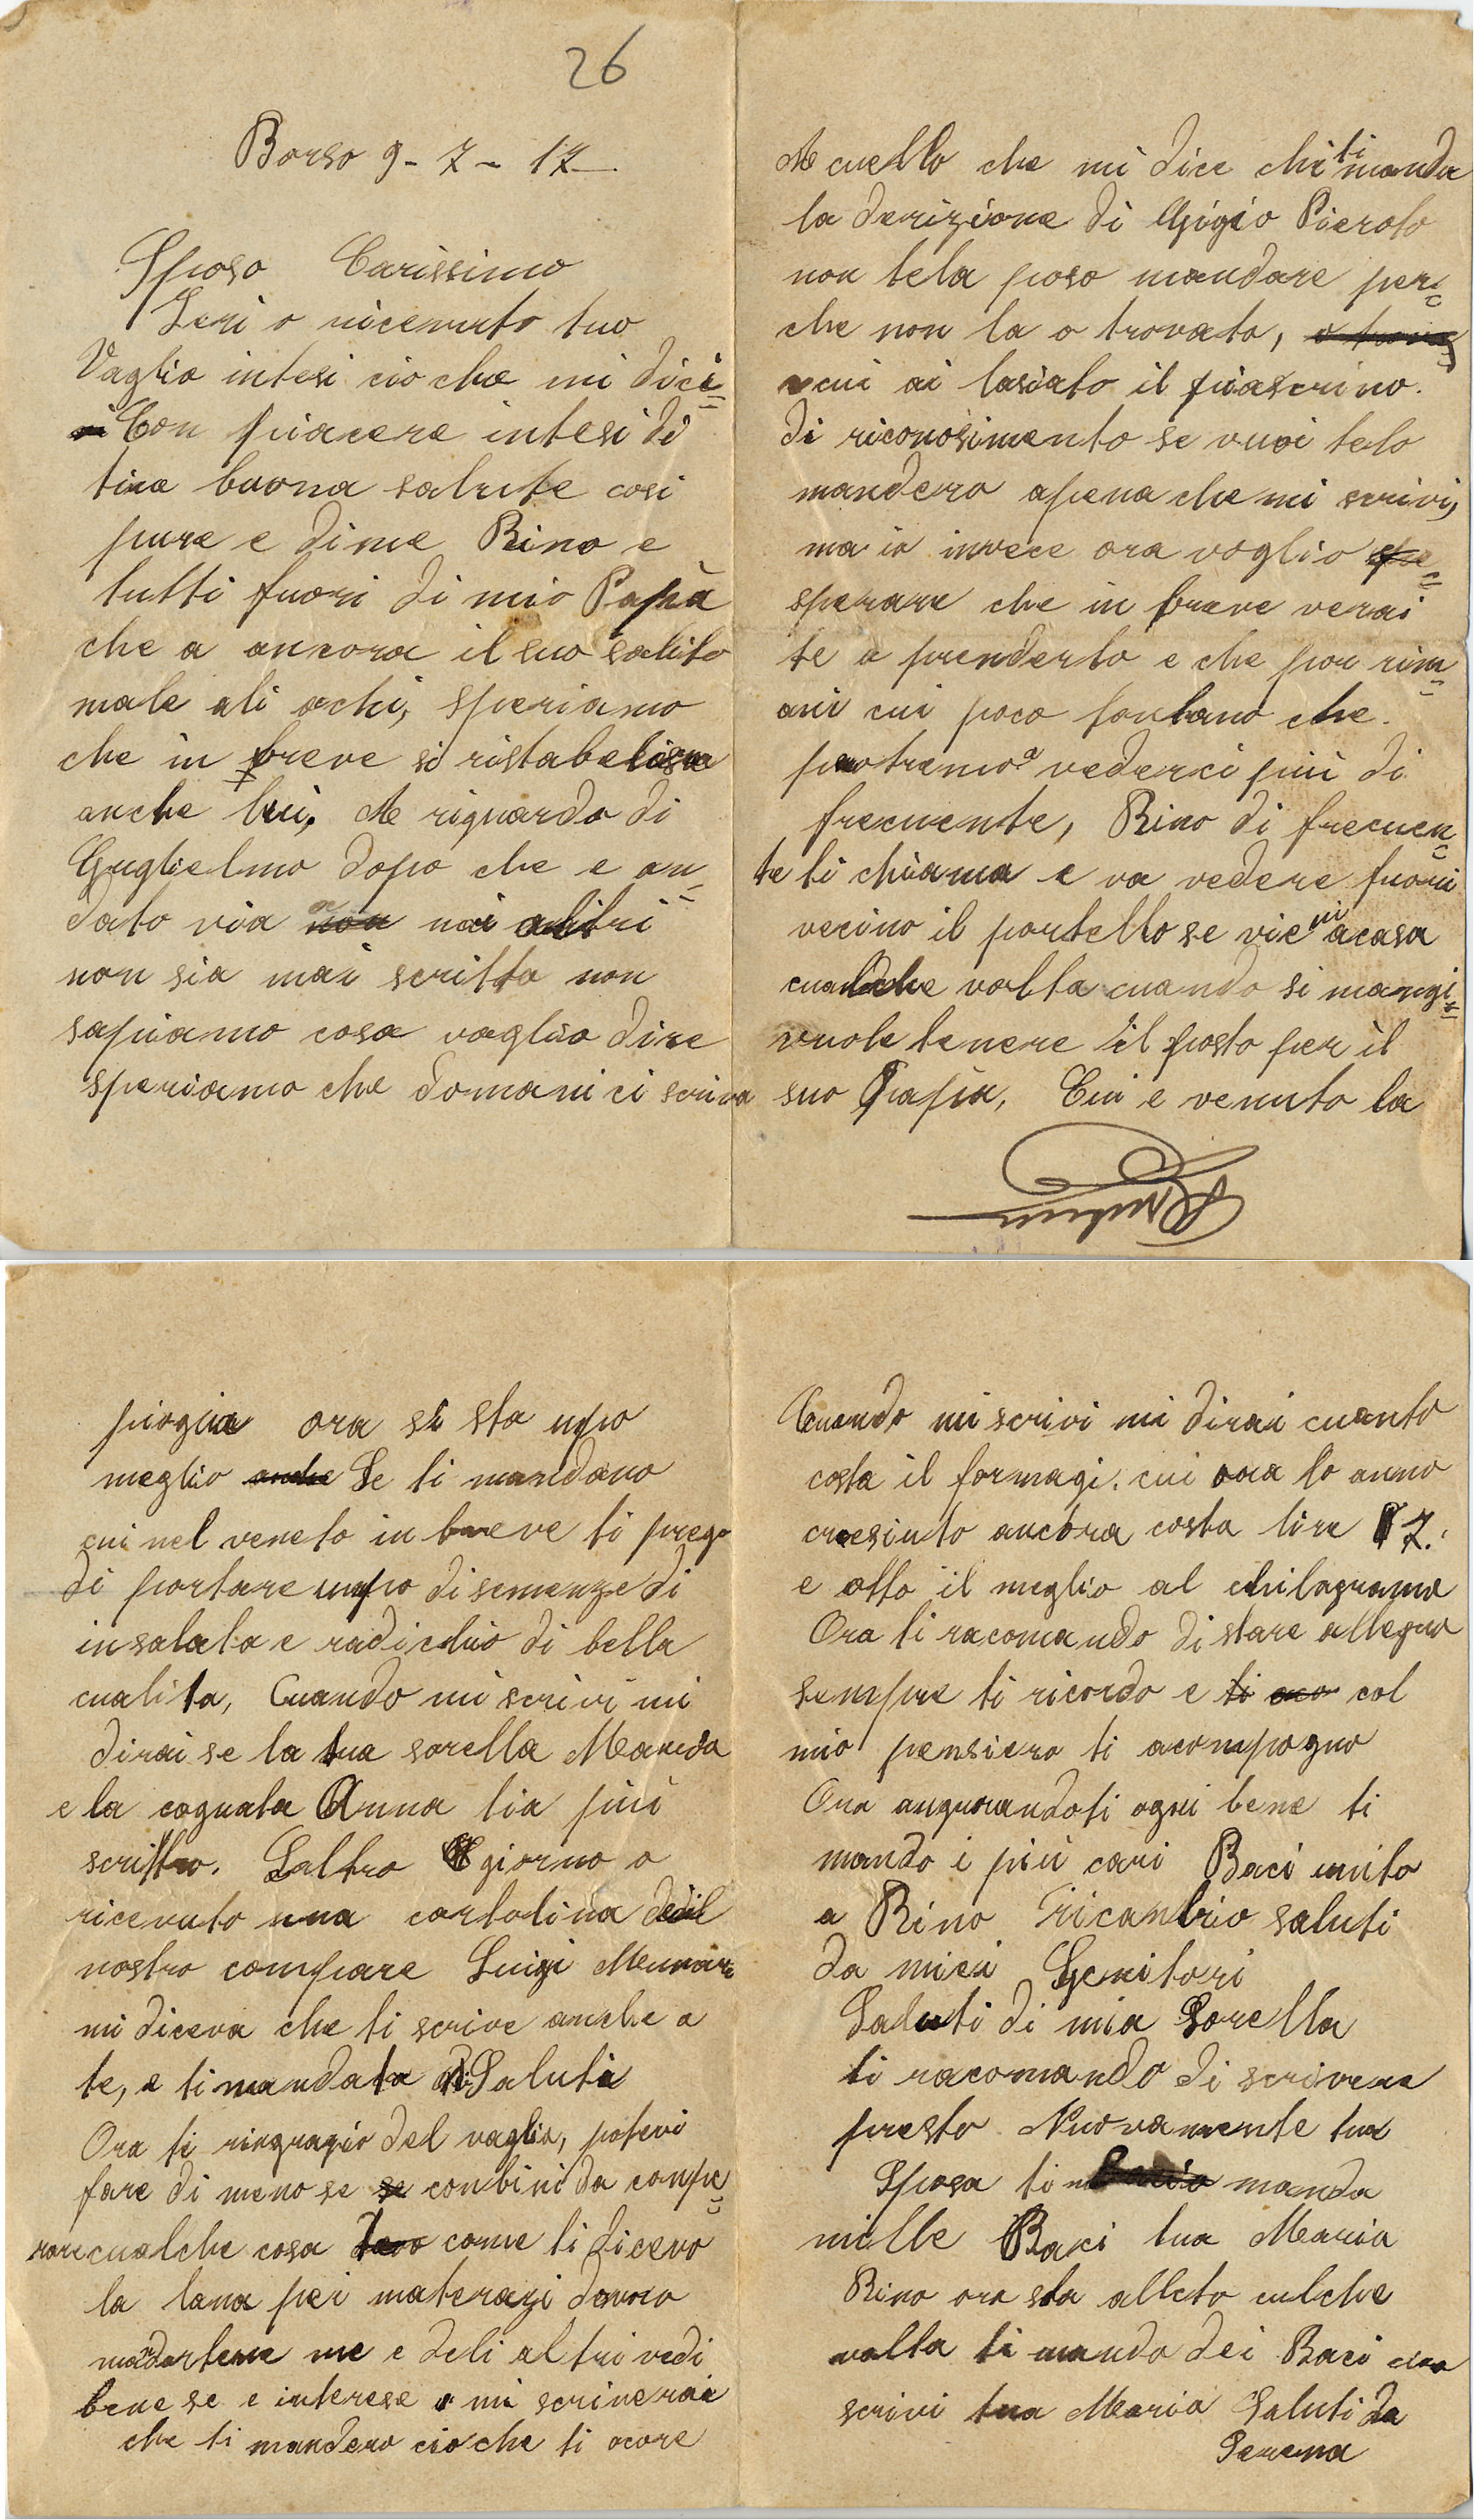 26
Borso 9-7-17
Sposo Carissimo
Ieri o ricevuto tuo
Vaglia intesi cio che mi dici
Con piacere intesi di
tua buona salute cosi
pure e di me Rino e
tutti fuori di mio Papà
che a ancora il suo solito
male ali ochi, speriamo
che in breve si ristabelisca
anche lui, A riguardo di
Guglielmo dopo che e an=
dato via non noi altri
non sia mai scritto non
sapiamo cosa voglia dire
speriamo che domani ci scriva
A cuello che mi dice chi ti manda
la derizione di Gigio Pieroto
non tela poso mandare per=
che non la o trovata, o trova
cui ai lasiato il piascrino.
di riconosimento se vuoi telo
mandero apena che mi scrivi,
ma io invece ora voglio spe=
sperare che in breve verai
te a prenderlo e che poi rim=
ani cui poco lontano che.
potremo vederci più di
frecuente, Rino di frecuen=
te ti chiama e va vedere fuori
vecino il portello se vieni acasa
cualche volta cuando si mangi=
vuole tenere il posto per il
suo Papia, Cui e venuto la
piogia ora si sta unpo
meglio anche Se ti mandano
cui nel veneto in breve ti prego
di portare unpo di semenze di
insalata e radichio di bella
cualita, Cuando mi scrivi mi
dirai se la tua sorella Marieta
e la cognata Anna tia più
scritto. Laltro giorno o
ricevuto una cartolina dedil
nostro compare Luigi Munari
mi diceva che ti scrive anche a
te, e ti mandata di Saluti
Ora ti ringrazio del vaglia, potevi
fare di meno se se conbini da conpe=
rare cualche cosa come ti dicevo
la lana pei materazi devo
mandartene me e deli altri vedi
bene se e interese o mi scriverai
che ti mandero cio che ti ocore
Cuando mi scrivi mi dirai cuanto
costa il formagi. cui ora lo anno
cresiuto ancora costa lire 7.
e otto il meglio al chilogramo
Ora ti racomando di stare allegro
sempre ti ricordo e ti aco col
mio pensiero ti acompogno
Ora augurandoti ogni bene ti
mando i più cari Baci unito
a Rino ricambio saluti
da miei Genitori
Saluti di mia Sorella
ti racomando di scrivere
presto Nuovamente tua
Sposa ti manda
mille Baci tua Maria
Rino ora sta alleto culche
volta ti manda dei Baci
scrivi tua Maria Saluti da
Serena